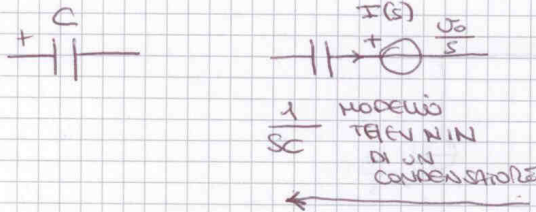 C
+
I(s)
+
v₀/s
1/SC
MODELLO
TEVENIN
DI UN
CONDENSATORE